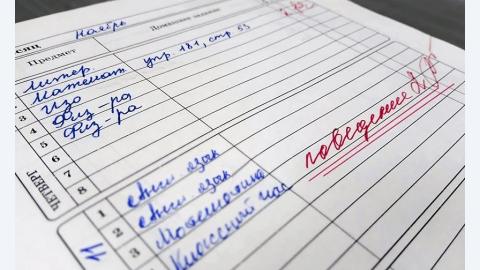 ноябрь
Предмет
Домашнее задание
литер.
Математ упр 181, стр 53
Изо
3 Физ-ра
4 Физ-ра
5
6
7
8
ЧЕТВЕРГ
поведение
1 Англ язык
2 Англ язык
3 Математика
Классный час
11